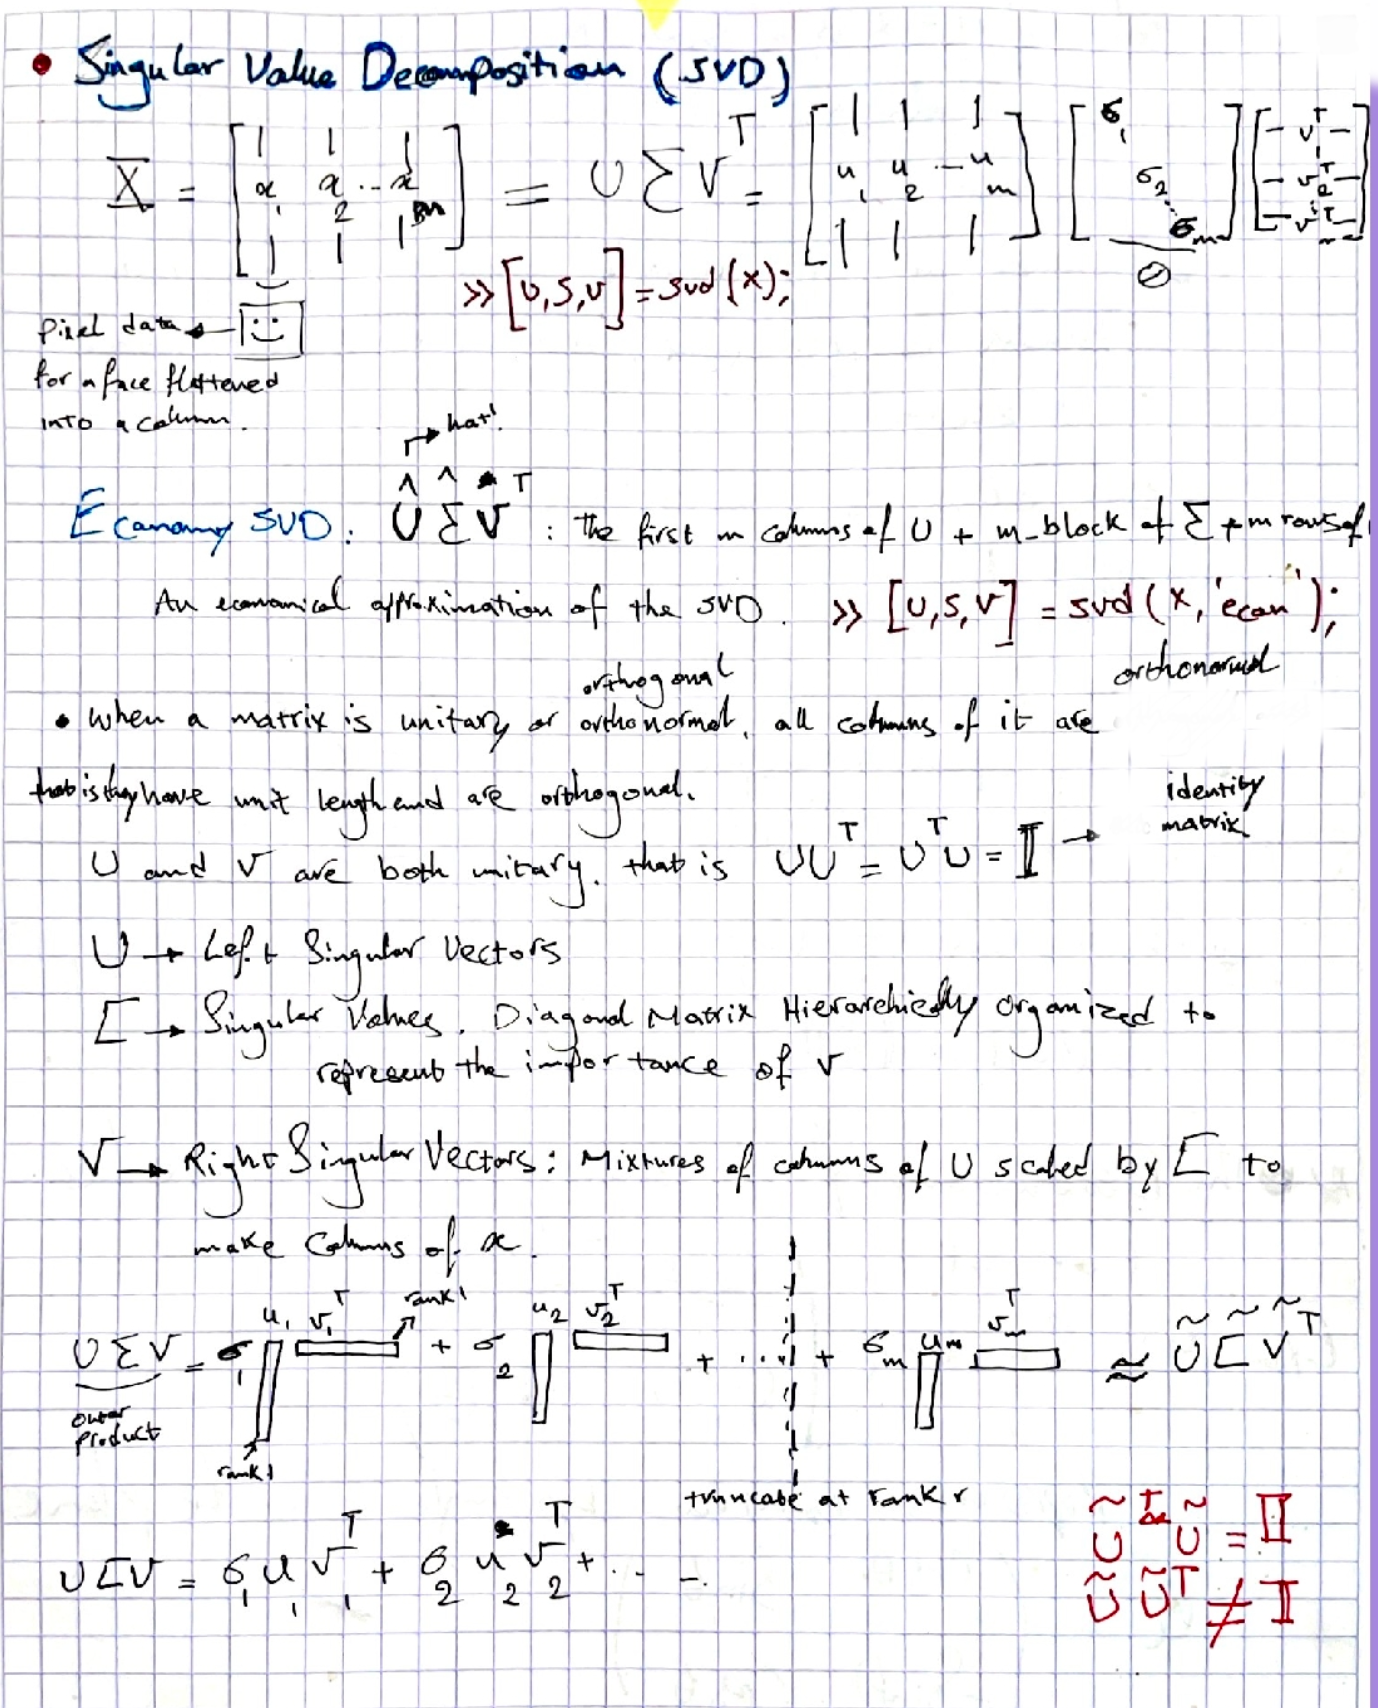 • Singular Value Decomposition (SVD)
X = [x₁ x₂ ... xₘ] = U Σ Vᵀ = [u₁ u₂ ... uₘ] [σ₁ σ₂ ... σₘ 0] [v₁ᵀ v₂ᵀ vₘᵀ]
>> [U,S,V] = svd(x);
Pixel data
for a face flattened
into a column.
hat!
Economy SVD: Û Σ̂ V̂ᵀ : the first m columns of U + m_block of Σ + m rows of
An economical approximation of the SVD. >> [U,S,V] = svd(x,'econ');
orthogonal
orthonormal
• When a matrix is unitary or orthonormal, all columns of it are
that is they have unit length and are orthogonal.
identity
matrix
U and V are both unitary. that is UUᵀ = UᵀU = I →
U → Left Singular Vectors
Σ → Singular Values. Diagonal Matrix Hierarchically organized to
represent the importance of V
V → Right Singular Vectors: Mixtures of columns of U scaled by Σ to
make Columns of x.
rank 1
UΣV = σ₁ u₁ v₁ᵀ + σ₂ u₂ v₂ᵀ + ... + σₘ uₘ vₘᵀ ≈ Ũ Σ̃ Ṽᵀ
outer
product
rank 1
truncate at rank r
UΣV = σ₁u₁v₁ᵀ + σ₂u₂v₂ᵀ + ...
ŨᵀŨ = I
ŨŨᵀ ≠ I